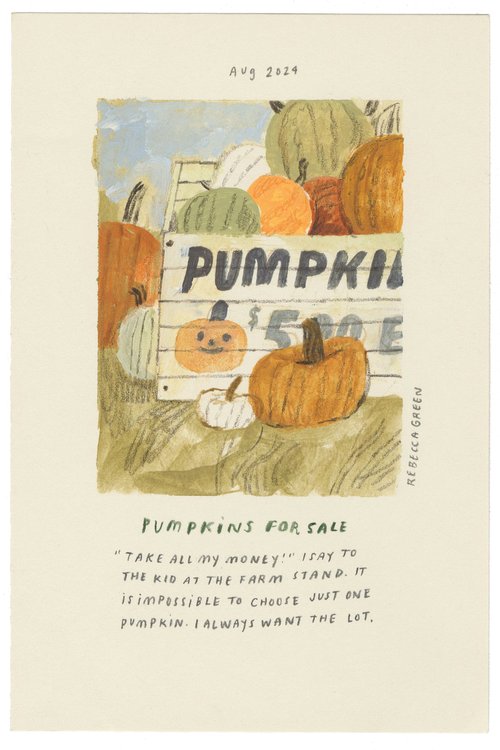 Aug 2024
PUMPKIN
$5.00 E
REBECCA GREEN
PUMPKINS FOR SALE
"TAKE ALL MY MONEY!" I SAY TO
THE KID AT THE FARM STAND. IT
IS IMPOSSIBLE TO CHOOSE JUST ONE
PUMPKIN. I ALWAYS WANT THE LOT.